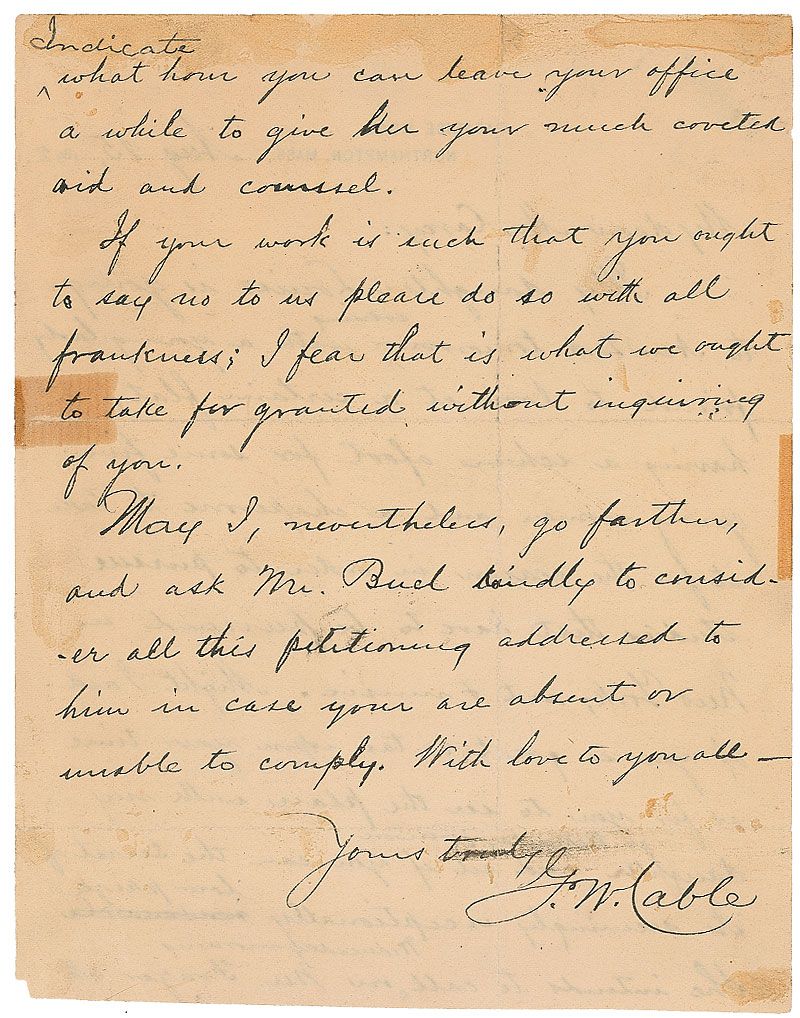 Indicate
^ what hour you can leave your office
a while to give her your much coveted
aid and counsel.
If your work is such that you ought
to say no to us please do so with all
frankness; I fear that is what we ought
to take for granted without inquiring
of you.
May I, nevertheless, go farther,
and ask Mr. Buel kindly to consid-
-er all this petitioning addressed to
him in case your are absent or
unable to comply. With love to you all —
Yours truly
G. W. Cable